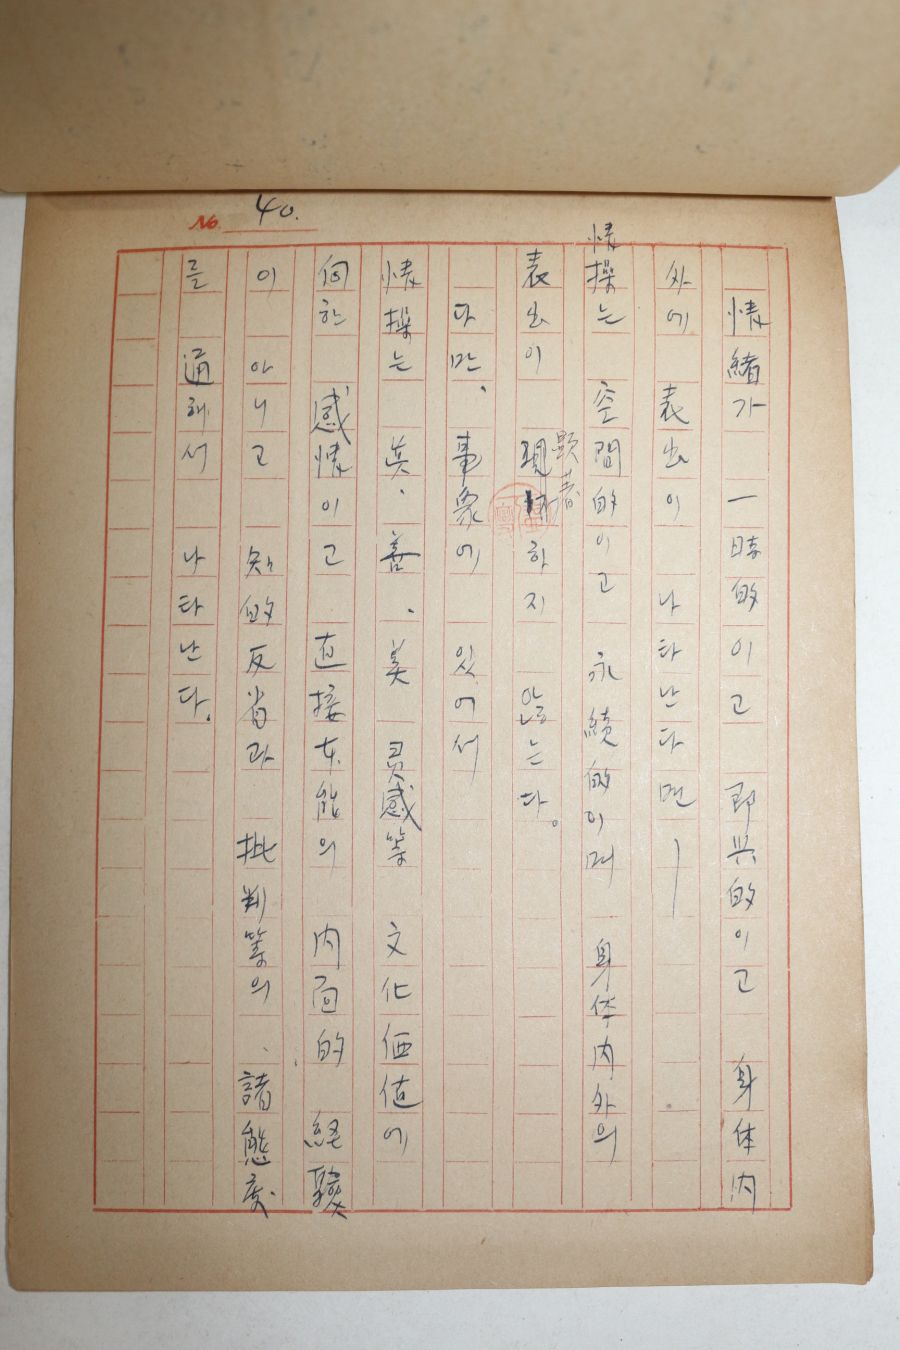 No. 40.
情緖가 一時的이고 即興的이고 身体内
外에 表出이 나타난다면 ―
情操는 空間的이고 永続的이며 身体内外의
表出이 顕著하지 않는다。
다만、事象에 있어서
情操는 眞、善、美 灵感等 文化価値에
向한 感情이고 直接本能의 内面的 経験
이 아니고 知的反省과 批判等의 諸態度
를 通해서 나타난다。